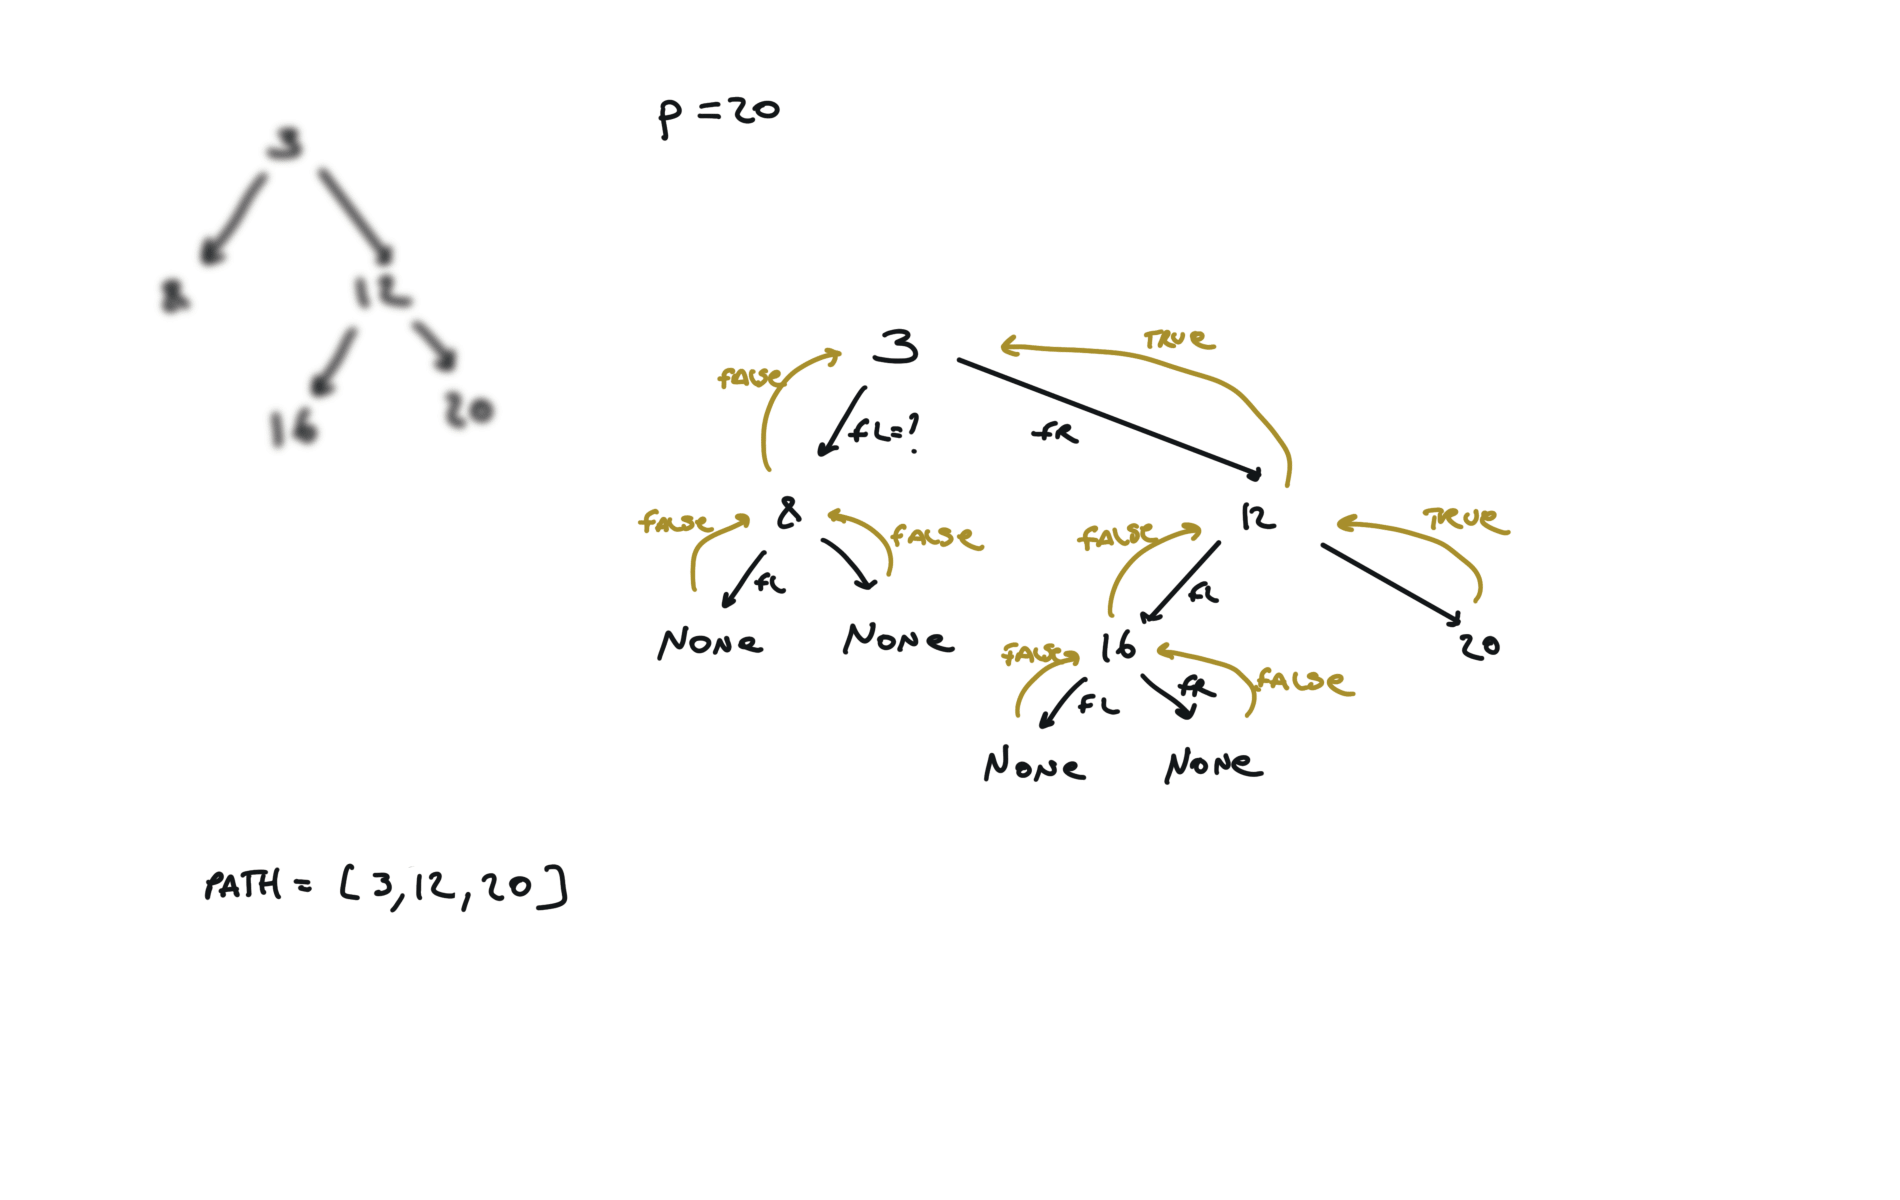 p = 20
3
8
12
16
20
3
TRUE
FALSE
fL=?
fR
8
12
FALSE
FALSE
FALSE
TRUE
fL
fL
None
None
16
20
FALSE
FALSE
fL
fR
None
None
PATH = [3,12,20]